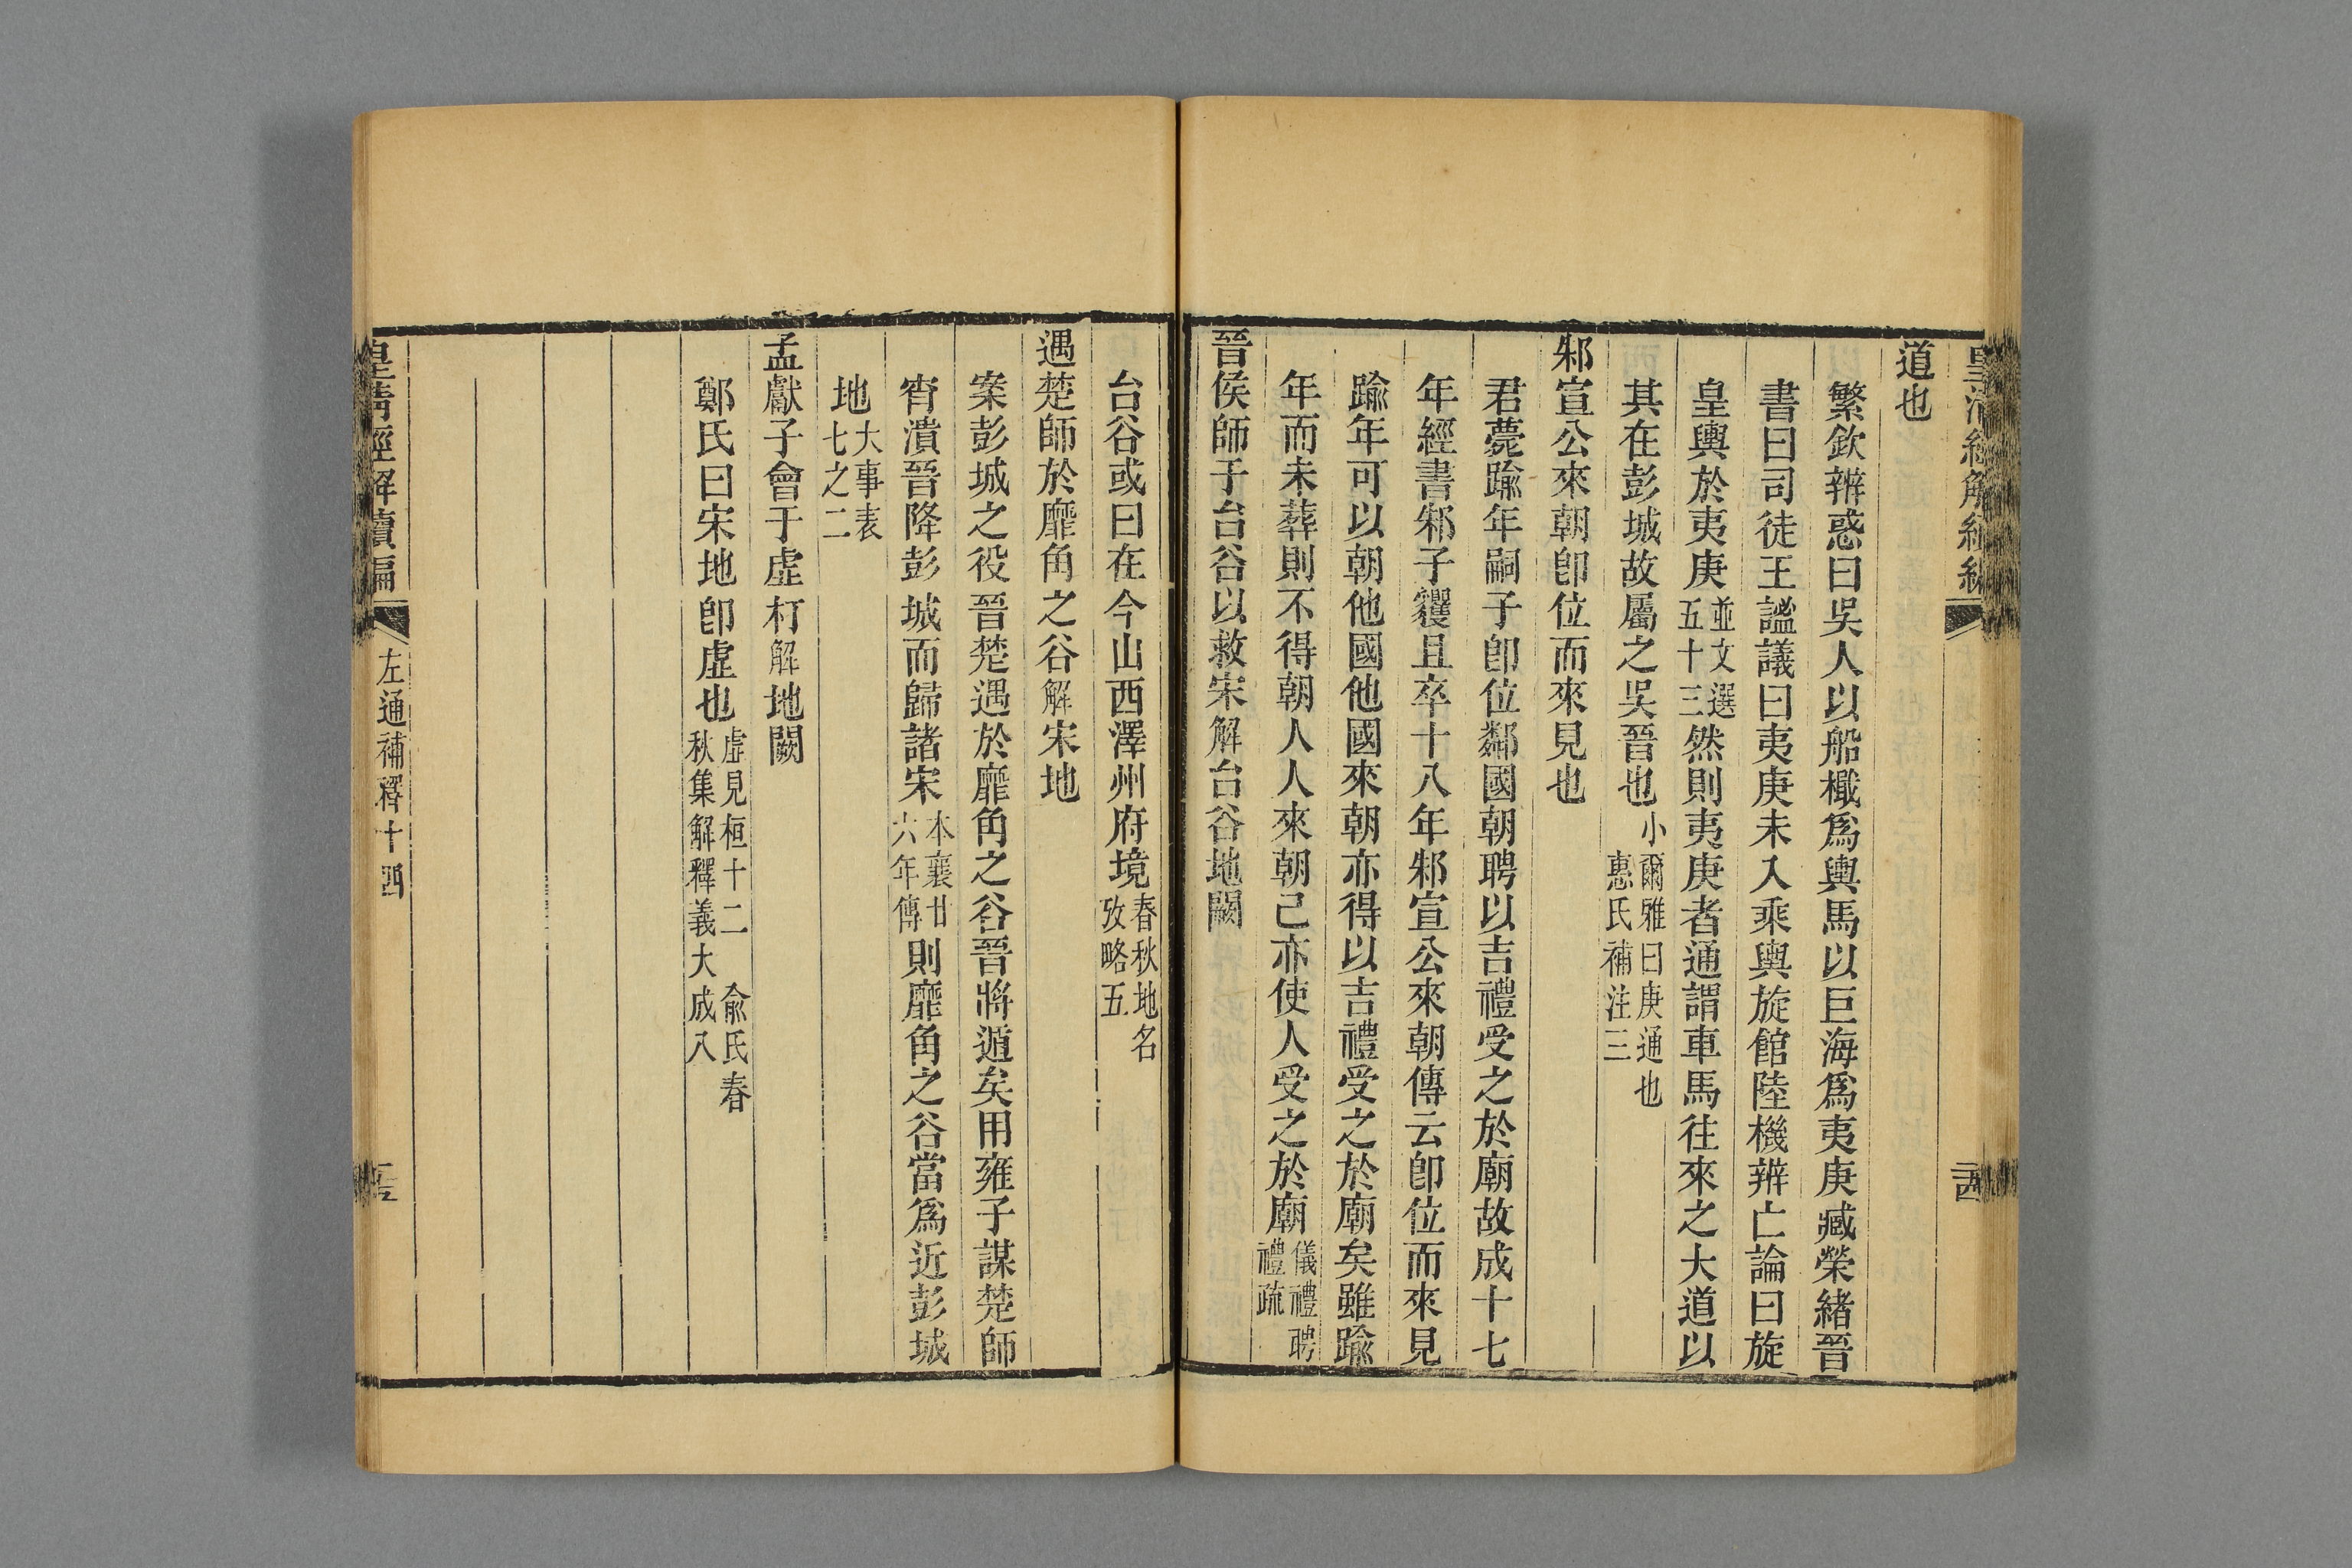 皇清經解續編
道也
繁欽辨惑曰吳人以船檝爲輿馬以巨海爲夷庚臧榮緒晉
書曰司徒王謐議曰夷庚未入乘輿旋館陸機辨亡論曰旋
皇輿於夷庚並文選五十三然則夷庚者通謂車馬往來之大道以
其在彭城故屬之吳晉也小爾雅曰庚通也惠氏補注三
邾宣公來朝卽位而來見也
君薨踰年嗣子卽位鄰國朝聘以吉禮受之於廟故成十七
年經書邾子貜且卒十八年邾宣公來朝傳云卽位而來見
踰年可以朝他國他國來朝亦得以吉禮受之於廟矣雖踰
年而未葬則不得朝人人來朝己亦使人受之於廟儀禮聘禮疏
晉侯師于台谷以救宋解台谷地闕
台谷或曰在今山西澤州府境春秋地名攷略五
遇楚師於靡角之谷解宋地
案彭城之役晉楚遇於靡角之谷晉將遁矣用雍子謀楚師
宵潰晉降彭城而歸諸宋本襄廿六年傳則靡角之谷當爲近彭城
地大事表七之二
孟獻子會于虛朾解地闕
鄭氏曰宋地卽虛也虛見桓十二 俞氏春秋集解釋義大成八
皇清經解續編
左通補釋十四